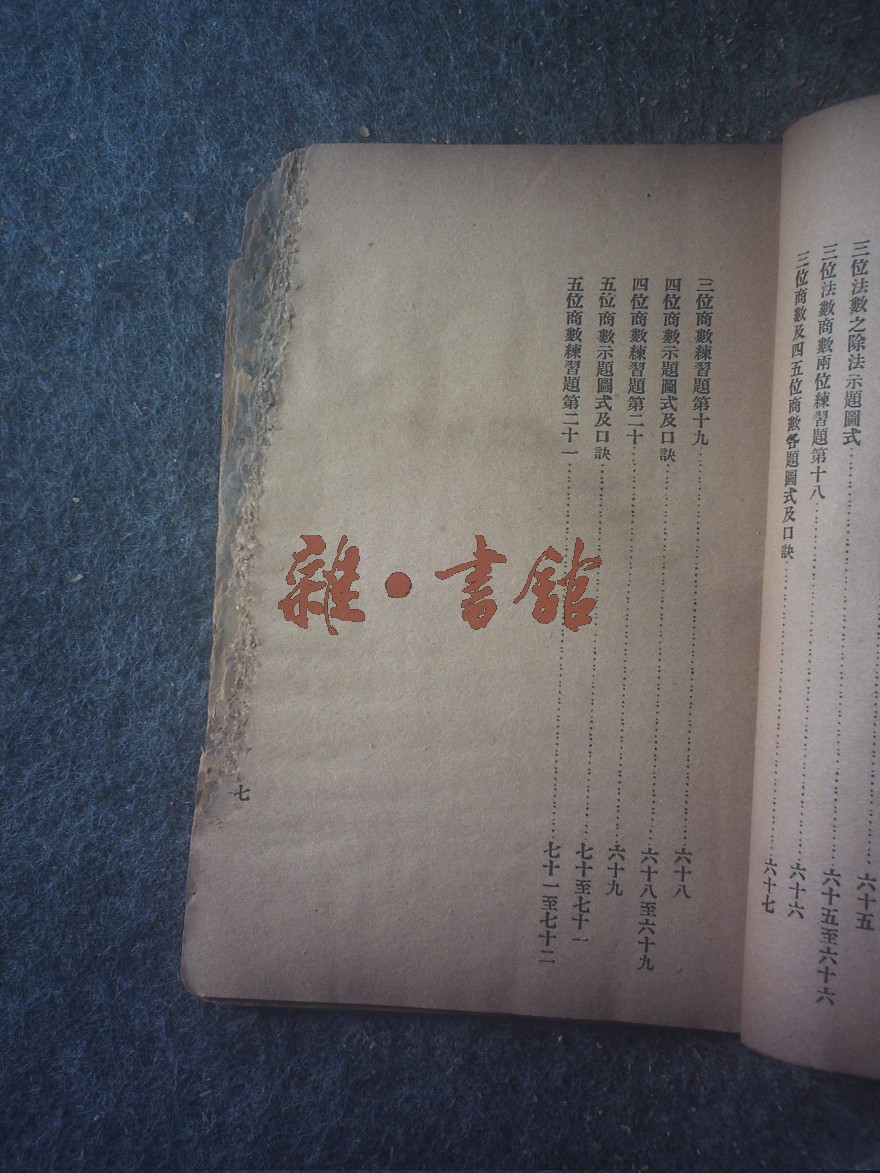 六十五
三位法數之除法示題圖式……六十五至六十六
三位法數商數兩位練習題第十八……六十六
三位商數及四五位商數各題圖式及口訣……六十七
三位商數練習題第十九……六十八
四位商數示題圖式及口訣……六十八至六十九
四位商數練習題第二十……六十九
五位商數示題圖式及口訣……七十至七十一
五位商數練習題第二十一……七十一至七十二
七
雜·書館